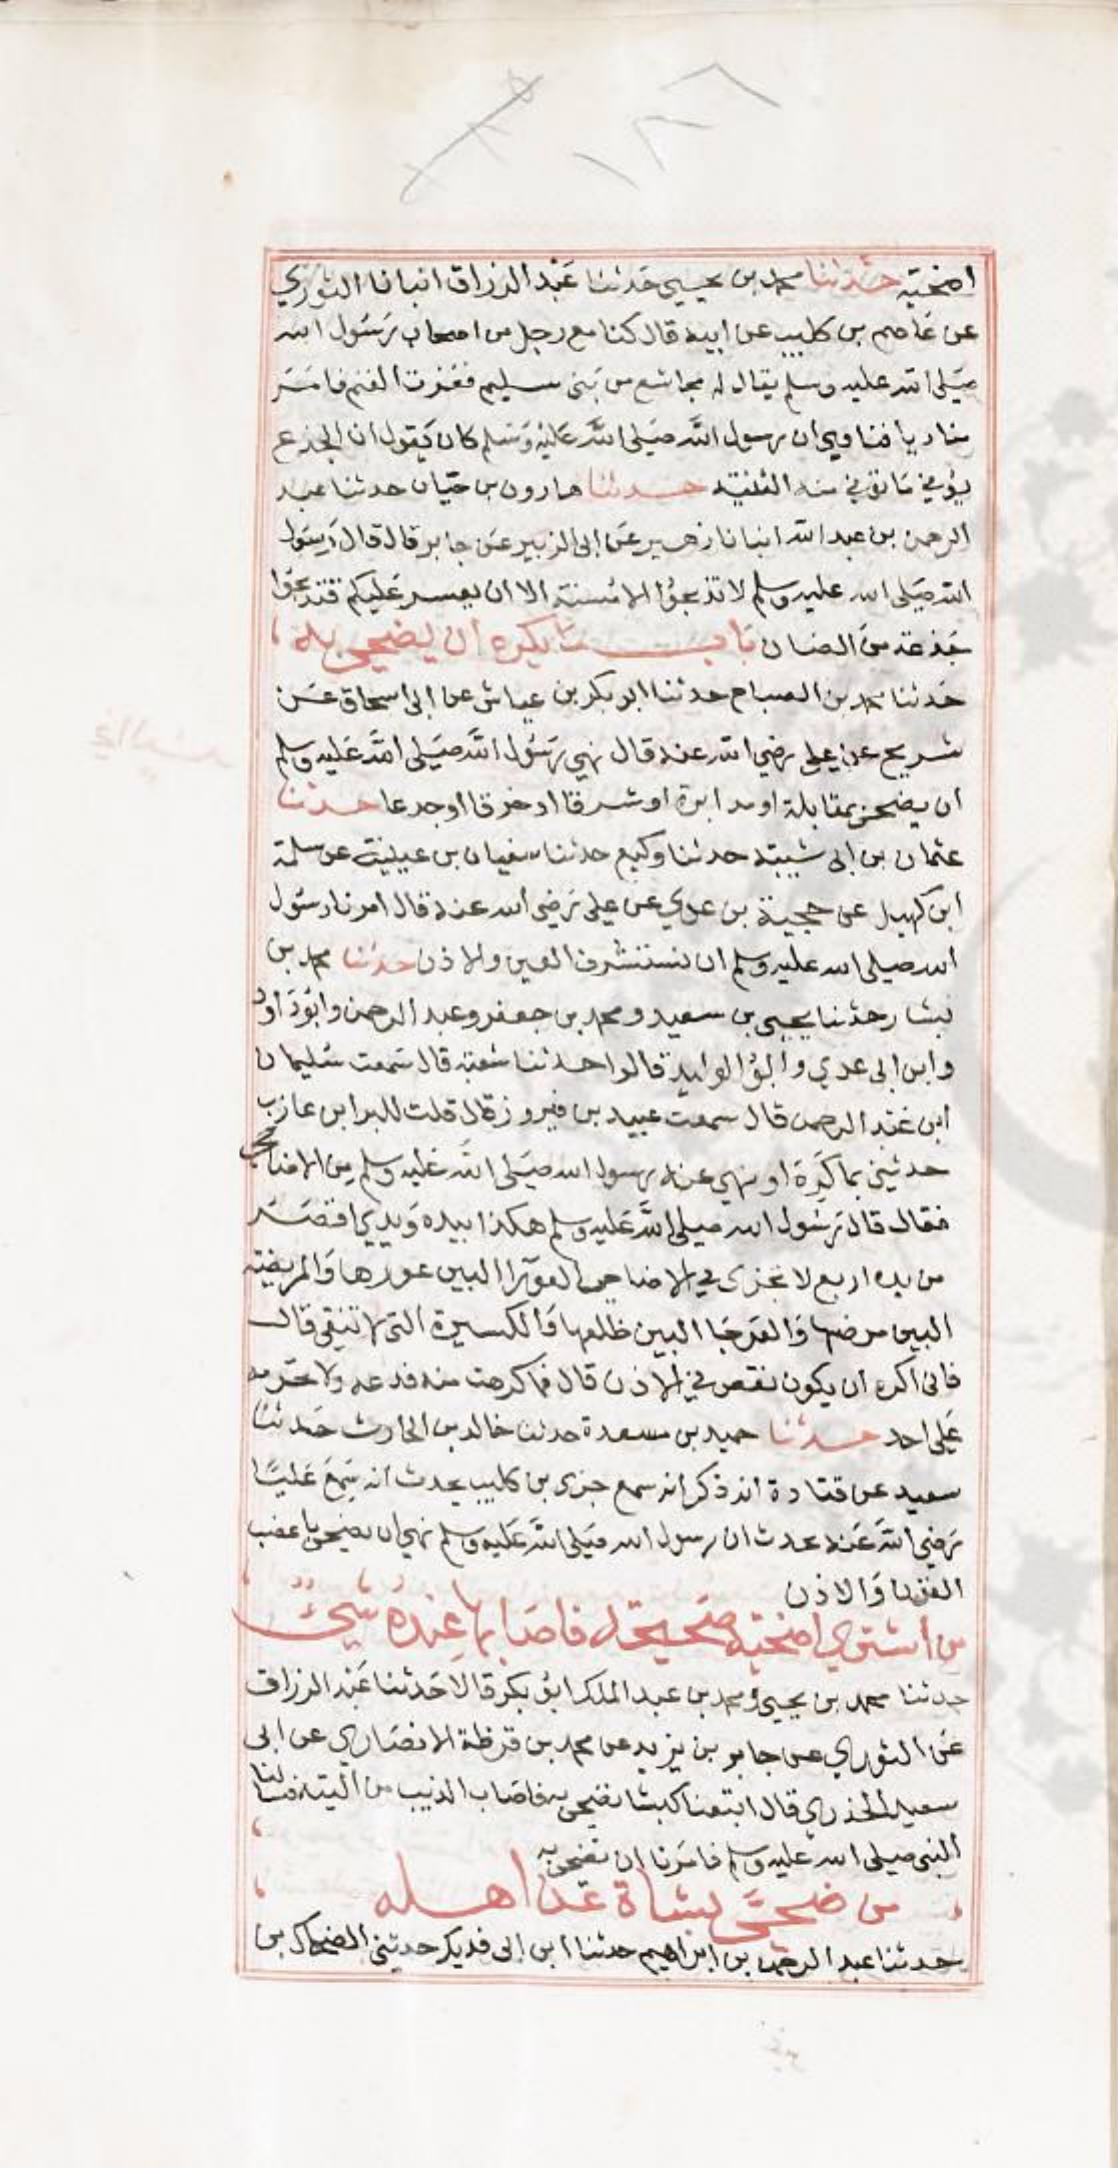 اضحية حدثنا محمد بن يحيى حدثنا عبد الرزاق انبانا الثوري
عن عاصم بن كليب عن ابيه قال كنا مع رجل من اصحاب رسول الله
صلى الله عليه وسلم يقال له مجاشع من بني سليم فعزت الغنم فامر
مناديا فنادى ان رسول الله صلى الله عليه وسلم كان يقول ان الجذع
يوفي مما توفي منه الثنية حدثنا هارون بن حيان حدثنا عبد
الرحمن بن عبد الله انبانا زهير عن ابى الزبير عن جابر قال قال رسول
الله صلى الله عليه وسلم لا تذبحوا الا مسنة الا ان يعسر عليكم فتذبحوا
جذعة من الضان باب ما يكره ان يضحى به
حدثنا محمد بن الصباح حدثنا ابو بكر بن عياش عن ابى اسحاق عن
شريح عن علي رضي الله عنه قال نهى رسول الله صلى الله عليه وسلم
ان يضحى بمقابلة او مدابرة او شرقا او خرقا او جدعا حدثنا
عثمان بن ابى شيبة حدثنا وكيع حدثنا سفيان بن عيينة عن سلمة
ابن كهيل عن حجية بن عدي عن علي رضي الله عنه قال امرنا رسول
الله صلى الله عليه وسلم ان نستشرف العين والاذن حدثنا محمد بن
بشار حدثنا يحيى بن سعيد ومحمد بن جعفر وعبد الرحمن وابو داود
وابن ابى عدي وابو الوليد قالوا حدثنا شعبة قال سمعت سليمان
ابن عبد الرحمن قال سمعت عبيد بن فيروز قال قلت للبرا بن عازب
حدثني بما كره او نهى عنه رسول الله صلى الله عليه وسلم من الاضاحي
فقال قال رسول الله صلى الله عليه وسلم هكذا بيده ويدي اقصر
من يده اربع لا تجزى في الاضاحى العورا البين عورها والمريضة
البين مرضها والعرجا البين ظلعها والكسيرة التى لا تنقى قال
فانى اكره ان يكون نقص في الاذن قال فما كرهت منه فدعه ولا تحرمه
على احد حدثنا حميد بن مسعدة حدثنا خالد بن الحارث حدثنا
سعيد عن قتادة انه ذكر انه سمع جزى بن كليب يحدث انه سمع عليا
رضي الله عنه يحدث ان رسول الله صلى الله عليه وسلم نهى ان يضحى باعضب
القرن والاذن
من اشترى اضحية صحيحة فاصابها عنده شيء
حدثنا محمد بن يحيى ومحمد بن عبد الملك ابو بكر قالا حدثنا عبد الرزاق
عن الثوري عن جابر بن يزيد عن محمد بن قرظة الانصاري عن ابى
سعيد الخدري قال ابتعنا كبشا نضحي به فاصاب الذيب من اليته فسالنا
النبى صلى الله عليه وسلم فامرنا ان نضحى به
من ضحى بشاة عن اهله
حدثنا عبد الرحمن بن ابراهيم حدثنا ابن ابى فديك حدثني الضحاك بن